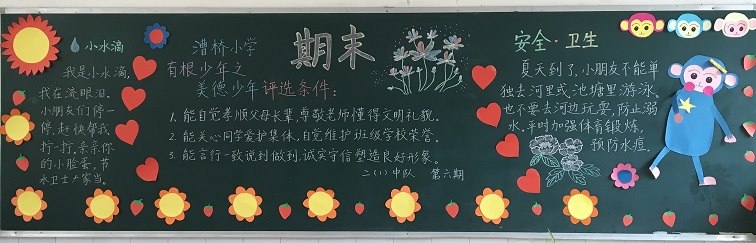 小水滴
我是小水滴,
我在流眼泪。
小朋友们停一
停,赶快帮我
拧一拧,亲亲你
的小脸蛋,节
水卫士大家当。
漕桥小学
有根少年之
美德少年评选条件:
期末
1.能自觉孝顺父母长辈,尊敬老师懂得文明礼貌。
2.能关心同学爱护集体,自觉维护班级学校荣誉。
3.能言行一致说到做到,诚实守信塑造良好形象。
二(1)中队 第六期
安全·卫生
夏天到了,小朋友不能单
独去河里或池塘里游泳,
也不要去河边玩耍,防止溺
水。平时加强体育锻炼,
预防水痘。